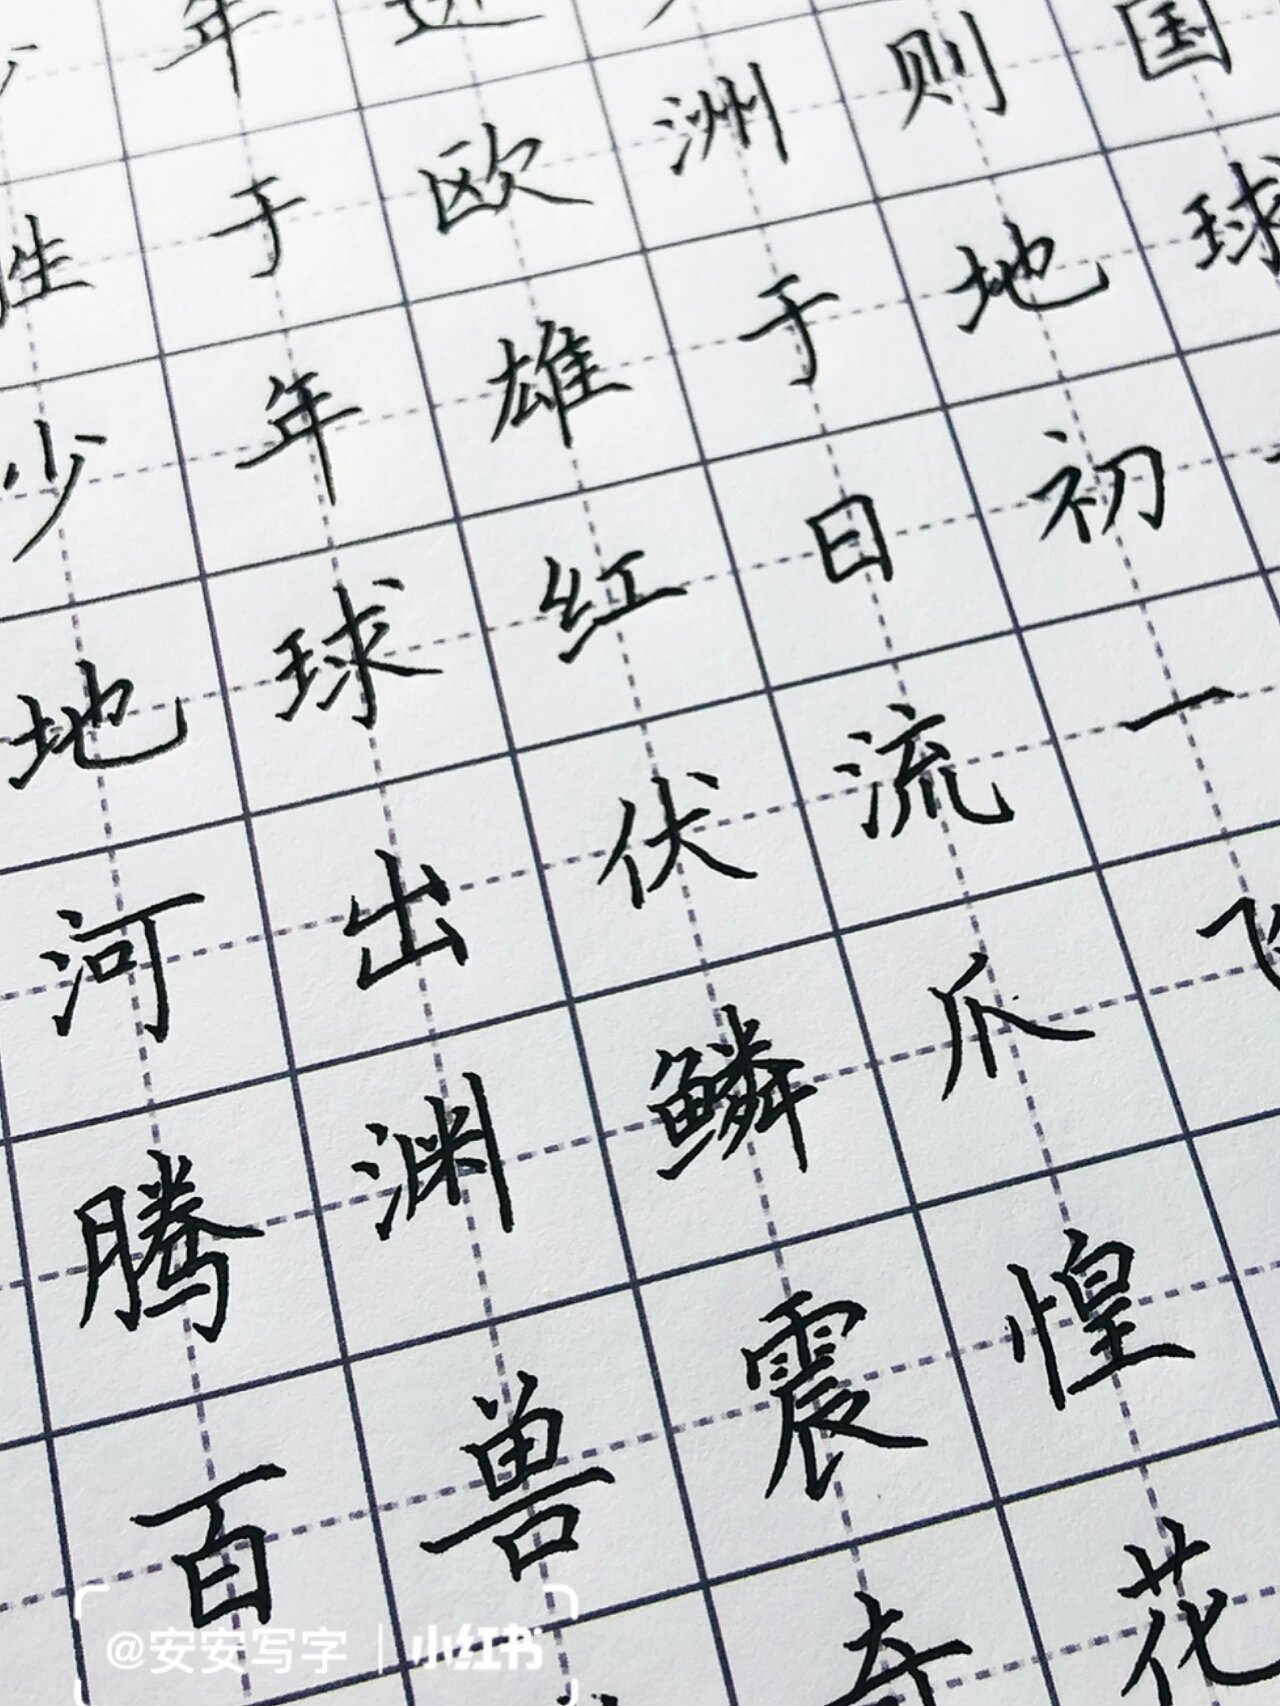 少年进
胜于欧洲则国
少年雄于地球
地球红日初
河出伏流一
腾渊鳞爪飞
百兽震惶
奇花
@安安写字 | 小红书